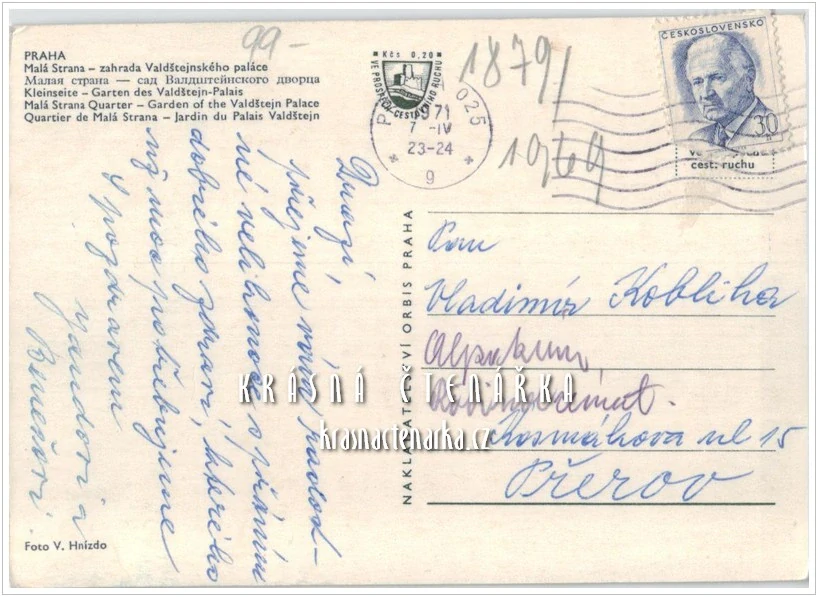 99-
PRAHA
Malá Strana – zahrada Valdštejnského paláce
Малая страна — сад Валдштейнского дворца
Kleinseite – Garten des Valdštejn-Palais
Malá Strana Quarter – Garden of the Valdštejn Palace
Quartier de Malá Strana – Jardin du Palais Valdštejn
Kčs 0,20
VE PROSPĚCH CESTOVNÍHO RUCHU
025
1971
7 -IV
23-24
9
1879/
1969
ČESKOSLOVENSKO
30 h
cest. ruchu
Drazí,
přejeme
né velikonoce s přáním
dobrého zdraví, kterého
my moc potřebujeme
S pozdravem
Benešovi
Pan
Vladimír Kobliha
Kosmákova ul 15
Přerov
NAKLADATELSTVÍ ORBIS PRAHA
KRÁSNÁ ČTENÁŘKA
krasnactenarka.cz
Foto V. Hnízdo